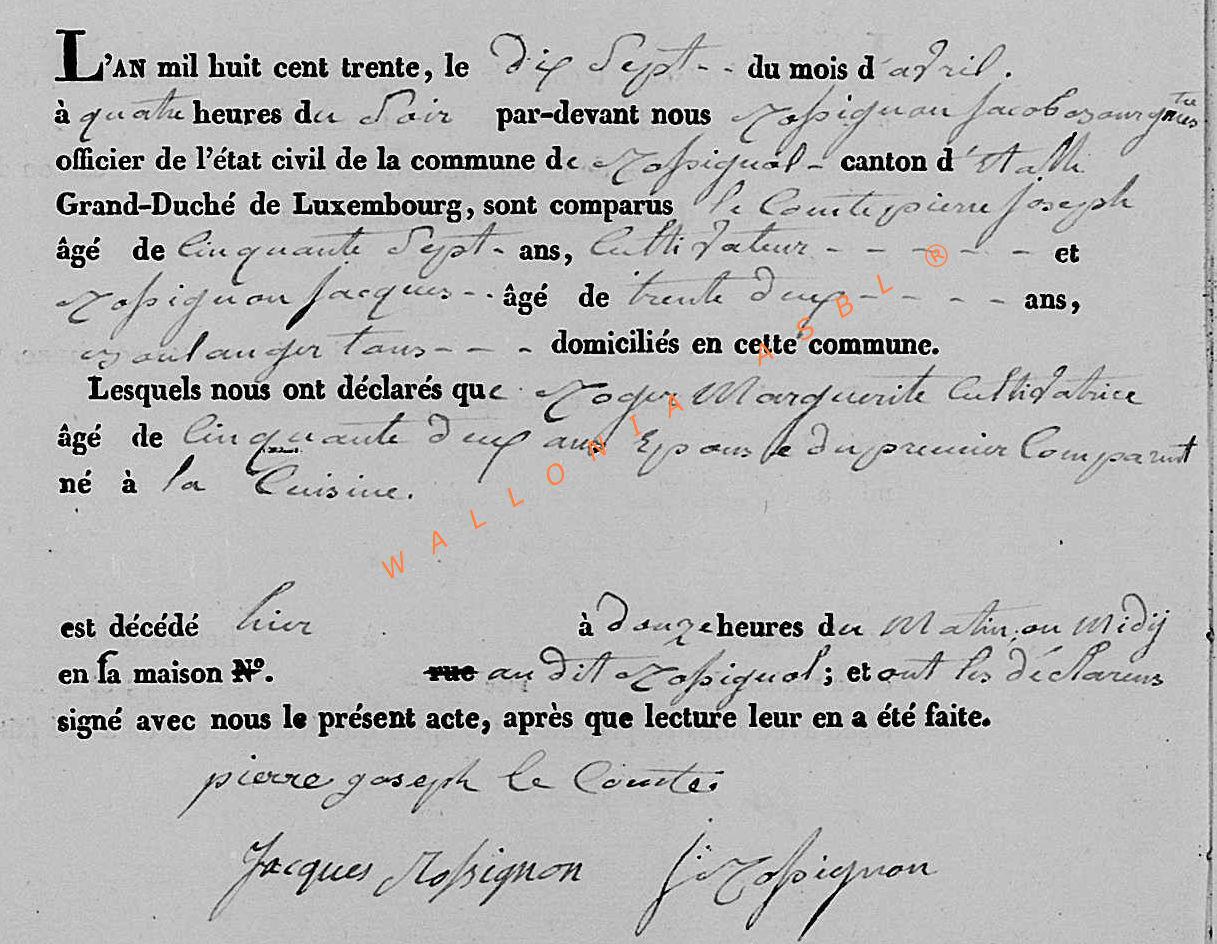 L'AN mil huit cent trente, le dix Sept - - du mois d'avril.
à quatre heures du Soir par-devant nous Rossignon Jacob
officier de l'état civil de la commune de Rossignol - canton d'Etalle
Grand-Duché de Luxembourg, sont comparus le Comte pierre Joseph
âgé de Cinquante Sept - ans, Cultivateur - - - - - et
Rossignon Jacques - - âgé de trente deux - - - - ans,
Boulanger tous - - - domiciliés en cette commune.
Lesquels nous ont déclarés que Roger Marguerite Cultivatrice
âgé de Cinquante deux ans Epouse du premier Comparant
né à la Cuisine.
est décédé hier à douze heures du Matin ou Midij
en sa maison Nº. rue au dit Rossignol; et ont les déclarens
signé avec nous le présent acte, après que lecture leur en a été faite.
pierre joseph le Comte
Jacques Rossignon J: Rossignon
WALLONIA ASBL ®